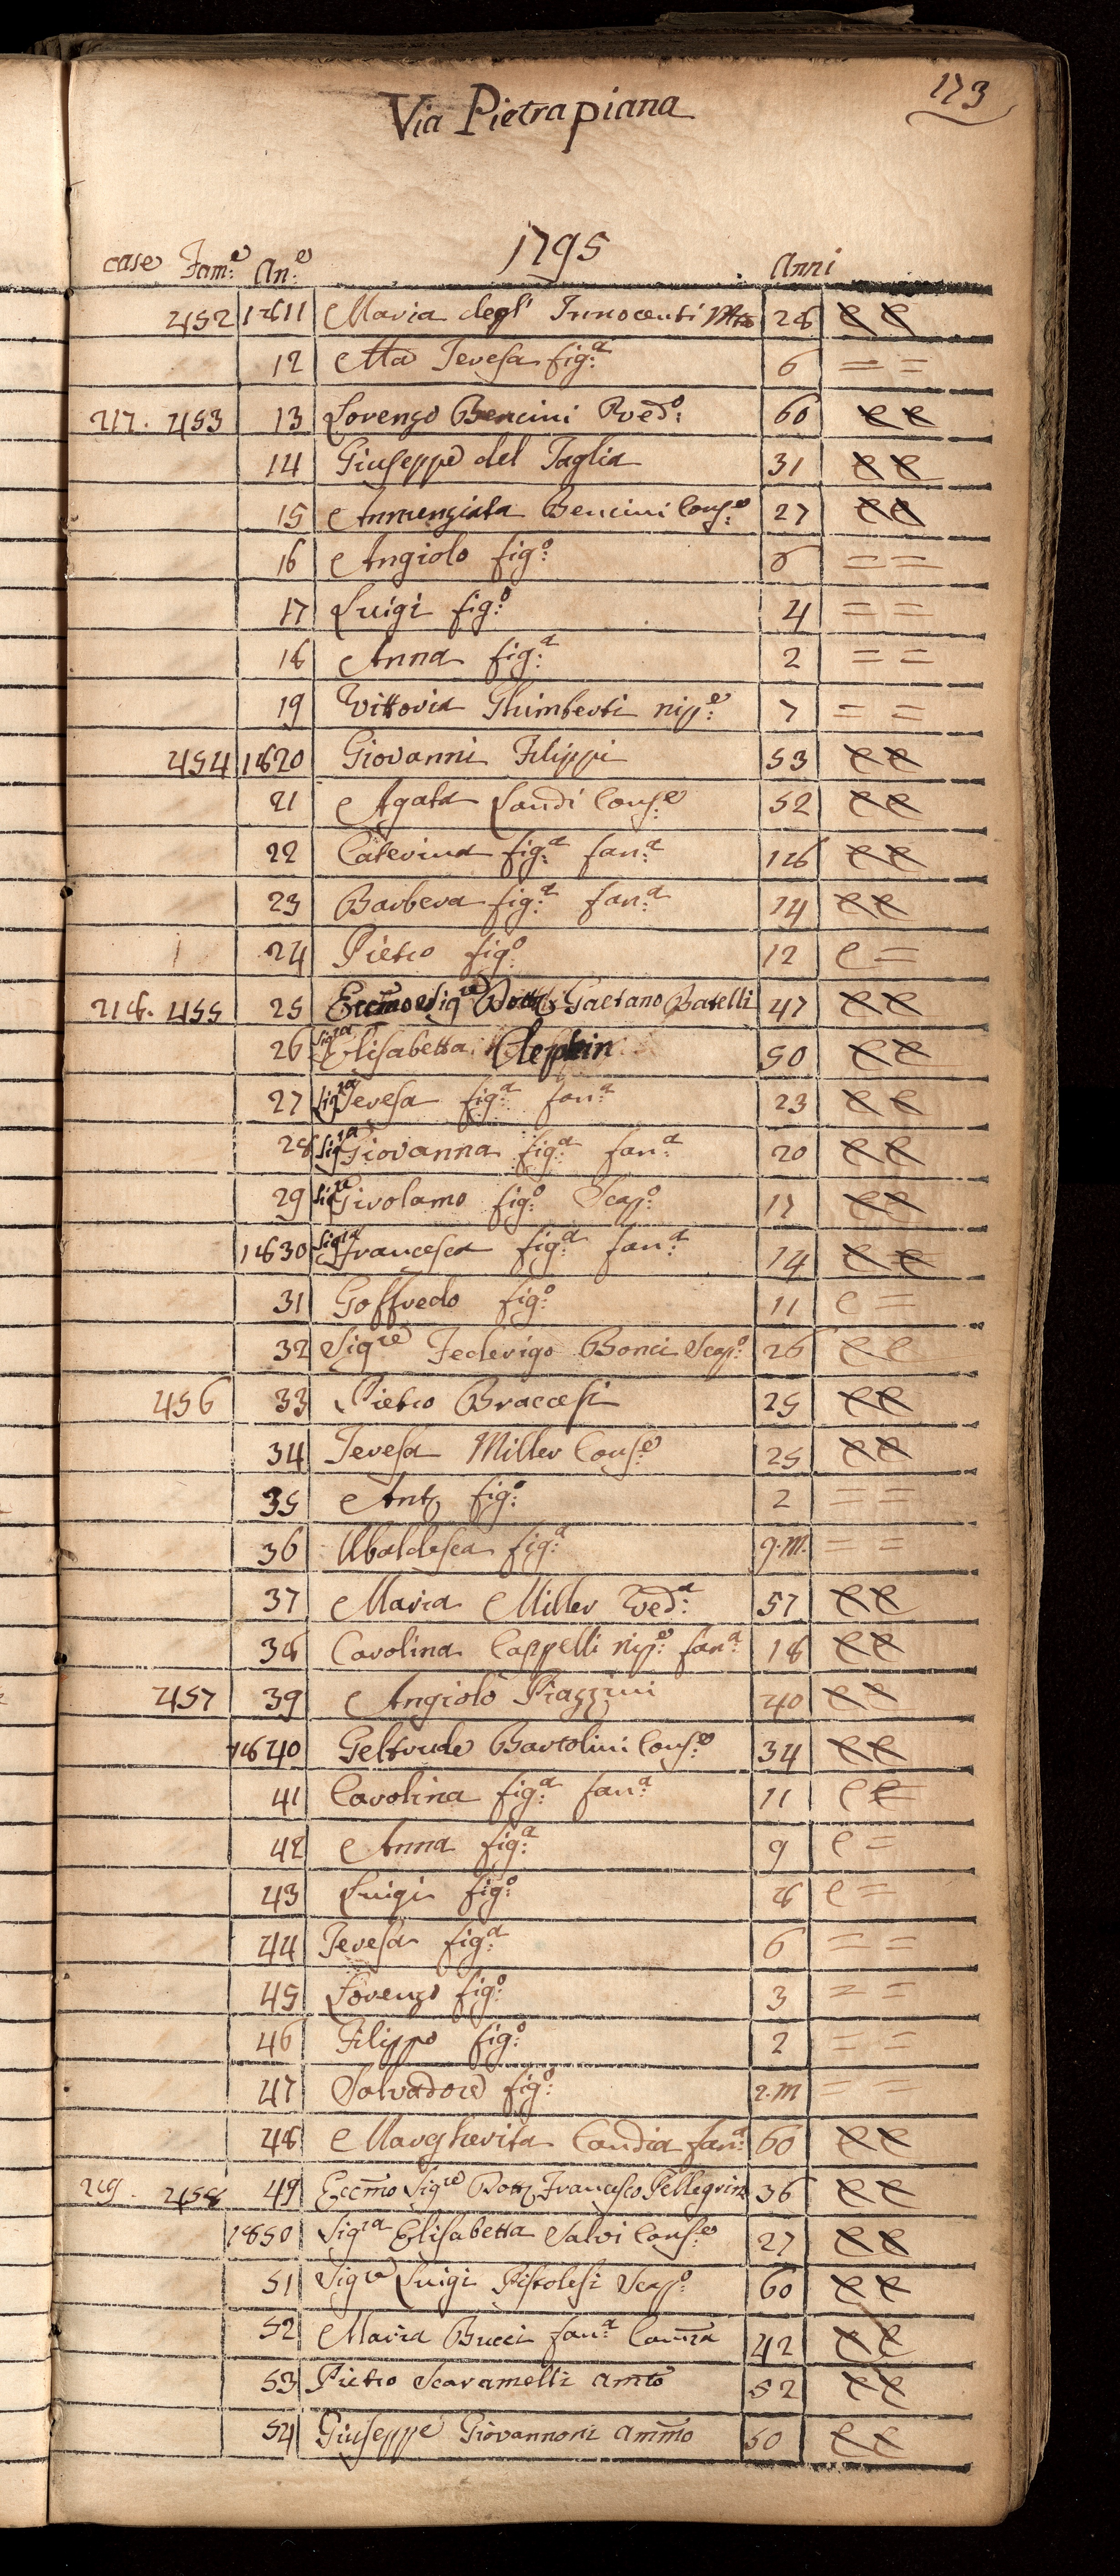 173
Via Pietrapiana
1795
case Fam:e An:e Anni
452 1811 Maria degl' Innocenti 28 e e
12 Ma Teresa fig:a 6 = =
217. 453 13 Lorenzo Bencini Ved:o 60 e e
14 Giuseppe del Taglia 31 e e
15 Annunziata Bencini Cons:e 27 e e
16 Angiolo fig:o = =
17 Luigi fig:o 4 = =
18 Anna fig:a 2 = =
19 Vittoria Ghimberti nip:e 7 = =
454 1820 Giovanni Filippi 53 e e
21 Agata Landi Cons:e 52 e e
22 Caterina fig:a fan:a 18 e e
23 Barbera fig:a fan:a 14 e e
24 Pietro fig:o 12 e =
218. 455 25 Eccmo Sigre Dott. Gaetano Batelli 47 e e
26 Sigra Elisabetta 50 e e
27 Sigra Teresa fig:a fan:a 23 e e
28 Sigra Giovanna fig:a fan:a 20 e e
29 Sigre Girolamo fig:o Scap:o 17 e e
1830 Sigra Francesca fig:a fan:a 14 e e
31 Goffredo fig:o 11 e =
32 Sigre Federigo Bonci Scap:o 26 e e
456 33 Pietro Braccesi 25 e e
34 Teresa Miller Cons:e 25 e e
35 Anto fig:o 2 = =
36 Ubaldesca fig:a 9.m. = =
37 Maria Miller Ved:a 57 e e
38 Carolina Cappelli nip:e fan:a 18 e e
457 39 Angiolo Piazzini 40 e e
1840 Geltrude Bartolini Cons:e 34 e e
41 Carolina fig:a fan:a 11 e e
42 Anna fig:a 9 e =
43 Luigi fig:o 8 e =
44 Teresa fig:a 6 = =
45 Lorenzo fig:o 3 = =
46 Filippo fig:o 2 = =
47 Salvadore fig:o 2.m = =
48 Margherita Candia fan:a 60 e e
219. 458 49 Eccmo Sigre Dott. Francesco Pellegrini 36 e e
1850 Sigra Elisabetta Salvi Cons:e 27 e e
51 Sigre Luigi Pistolesi Scap:o 60 e e
52 Maria Bucci fan:a Camra 42 e e
53 Pietro Scaramelli amto 52 e e
54 Giuseppe Giovannoni ammo 50 e e